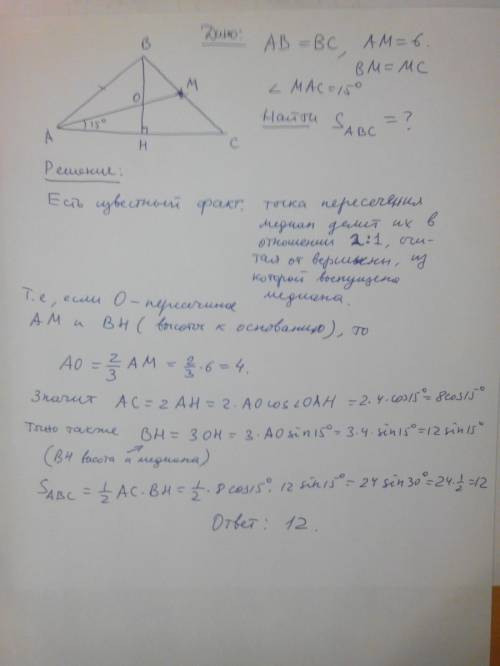 Дано: AB = BC, AM = 6.
BM = MC
∠ MAC = 15°
Найти S_ABC = ?
B
M
O
A
15°
H
C
Решение:
Есть известный факт: точка пересечения
медиан делит их в
отношении 2:1, счи-
тая от вершины, из
которой выпущена
медиана.
Т.е, если O – пересечение
AM и BH (высоты к основанию), то
AO = 2/3 AM = 2/3 · 6 = 4.
Значит AC = 2 AH = 2 · AO cos∠OAH = 2 · 4 · cos15° = 8cos15°
Точно также BH = 3 OH = 3 · AO sin15° = 3 · 4 · sin15° = 12 sin15°
(BH высота и медиана)
S_ABC = 1/2 AC · BH = 1/2 · 8cos15° · 12 sin15° = 24 sin30° = 24 · 1/2 = 12
Ответ: 12.